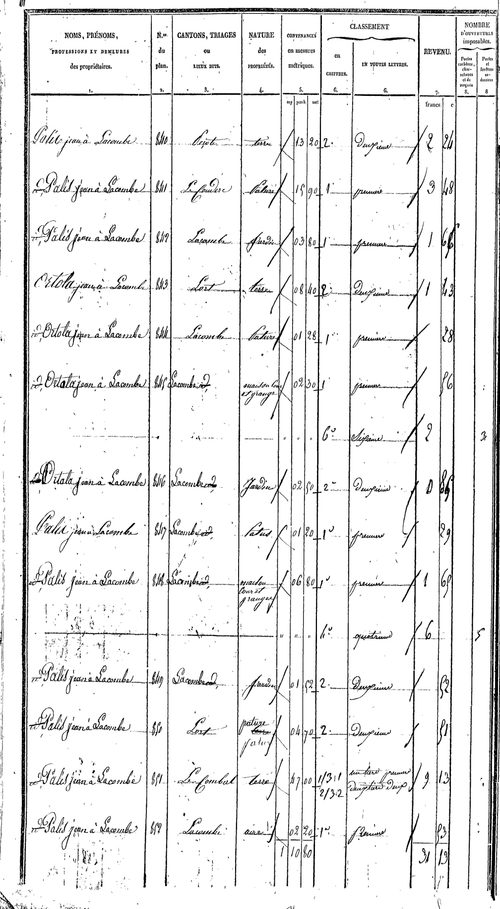 NOMS, PRÉNOMS,
PROFESSIONS ET DEMEURES
des propriétaires.
N.os
du
plan.
CANTONS, TRIAGES
ou
LIEUX DITS.
NATURE
des
PROPRIÉTÉS.
CONTENANCE
en mesures
métriques.
CLASSEMENT
en
CHIFFRES.
EN TOUTES LETTRES.
REVENU.
NOMBRE
D'OUVERTURES
imposables.
1. 2. 3. 4. 5. 6. 6. 7. 8. 8
francs c
Palis jean à Lacombe 840 terre 13 20 2. Deuxième 2 24
Palis jean à Lacombe 841 Le Couderc Pature 15 90 1 premier 3 48
Palis jean à Lacombe 842 Lacombe Jardin 03 80 1 premier 1 66
Ortola jean à Lacombe 843 Lort terre 08 40 2 Deuxième 1 43
Ortola jean à Lacombe 844 Lacombe Pature 01 28 1 premier 28
Ortola jean à Lacombe 845 Lacombe maison et grange 02 30 1 premier 56
6e Sixième 2 3
Ortola jean à Lacombe 846 Lacombe Jardin 02 50 2 Deuxième
Palis jean à Lacombe 847 Lacombe Patus 01 20 1 premier 29
Palis jean à Lacombe 848 Lacombe maison cour et granges 06 80 1 premier 1 65
4e quatrième 6 5
Palis jean à Lacombe 849 Lacombe Jardin 01 52 2. Deuxième 52
Palis jean à Lacombe 850 Lort pature patus 04 70 2. Deuxième 51
Palis jean à Lacombe 851 Le Combal terre 47 00 1/3 1 un tiers premier
2/3 2 deux tiers deux 9 13
Palis jean à Lacombe 852 Lacombe aire 02 20 1 premier 53
1 10 80 31 13